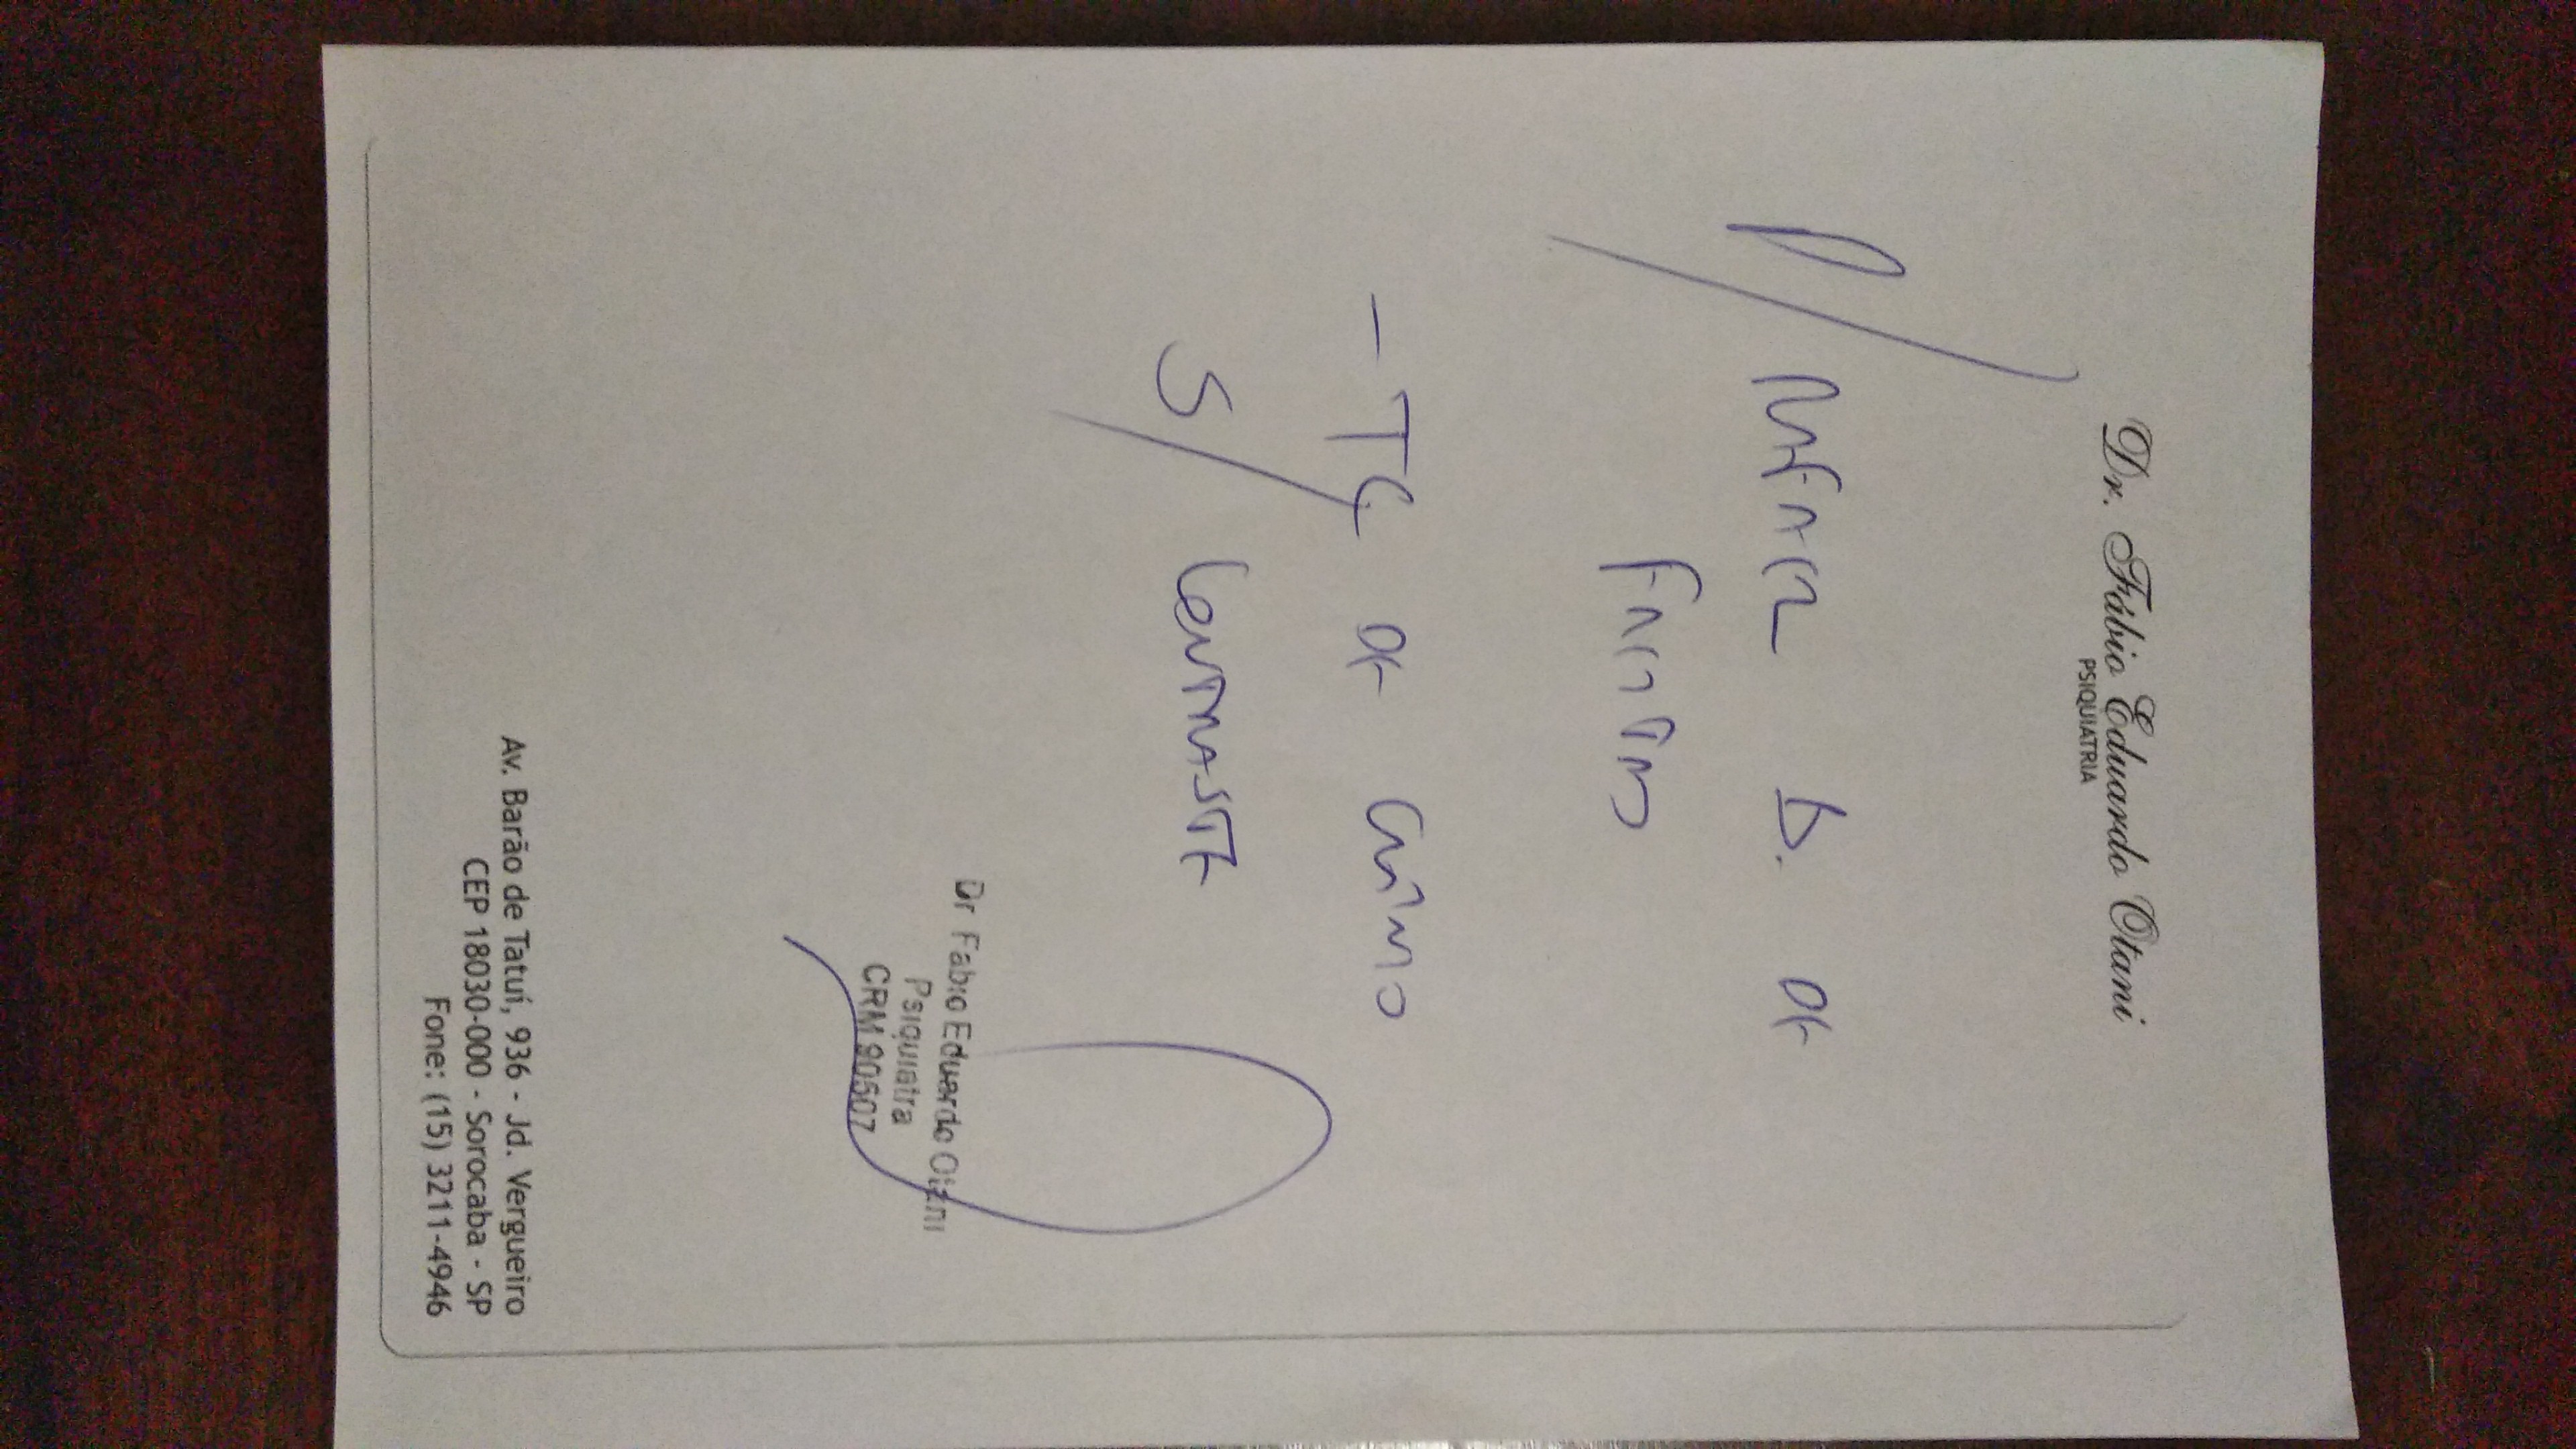 Dr. Fábio Eduardo Otani
PSIQUIATRIA
P/ Rafael D. de
Farias
- TC de Crânio
S/ Contraste
Dr Fabio Eduardo Otani
Psiquiatra
CRM 90507
Av. Barão de Tatuí, 936 - Jd. Vergueiro
CEP 18030-000 - Sorocaba - SP
Fone: (15) 3211-4946